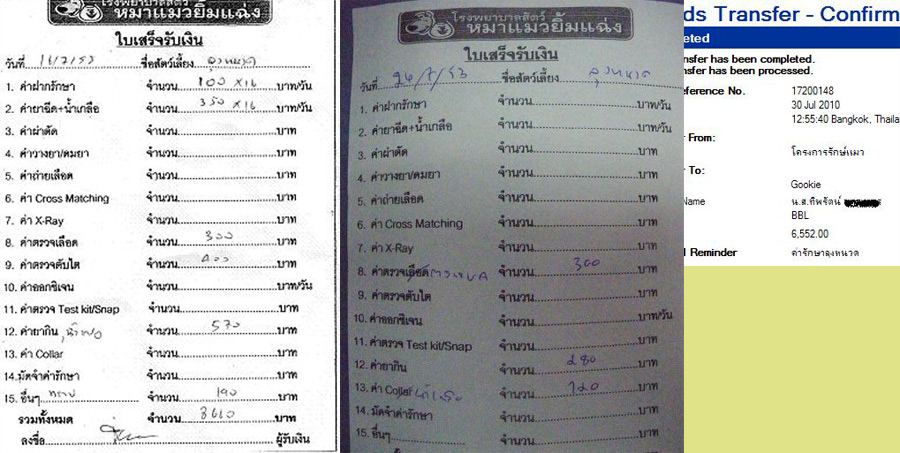 โรงพยาบาลสัตว์
หมาแมวยิ้มแฉ่ง
ใบเสร็จรับเงิน
วันที่ 16/7/53 ชื่อสัตว์เลี้ยง ลุงหนวด
1. ค่าฝากรักษา จำนวน 100 x16 บาท/วัน
2. ค่ายาฉีด+น้ำเกลือ จำนวน 350 x16 บาท/วัน
3. ค่าผ่าตัด จำนวน บาท
4. ค่าวางยา/ดมยา จำนวน บาท
5. ค่าถ่ายเลือด จำนวน บาท
6. ค่า Cross Matching จำนวน บาท
7. ค่า X-Ray จำนวน บาท
8. ค่าตรวจเลือด จำนวน 300 บาท
9. ค่าตรวจตับไต จำนวน 400 บาท
10. ค่าออกซิเจน จำนวน บาท/วัน
11. ค่าตรวจ Test kit/Snap จำนวน บาท
12. ค่ายากิน จำนวน 570 บาท
13. ค่า Collar จำนวน บาท
14. มัดจำค่ารักษา จำนวน บาท
15. อื่นๆ ทราย จำนวน 190 บาท
รวมทั้งหมด จำนวน 8660 บาท
ลงชื่อ ผู้รับเงิน
โรงพยาบาลสัตว์
หมาแมวยิ้มแฉ่ง
ใบเสร็จรับเงิน
วันที่ 24/7/53 ชื่อสัตว์เลี้ยง ลุงหนวด
1. ค่าฝากรักษา จำนวน บาท/วัน
2. ค่ายาฉีด+น้ำเกลือ จำนวน บาท/วัน
3. ค่าผ่าตัด จำนวน บาท
4. ค่าวางยา/ดมยา จำนวน บาท
5. ค่าถ่ายเลือด จำนวน บาท
6. ค่า Cross Matching จำนวน บาท
7. ค่า X-Ray จำนวน บาท
8. ค่าตรวจเลือด จำนวน 300 บาท
9. ค่าตรวจตับไต จำนวน บาท
10. ค่าออกซิเจน จำนวน บาท/วัน
11. ค่าตรวจ Test kit/Snap จำนวน บาท
12. ค่ายากิน จำนวน 280 บาท
13. ค่า Collar จำนวน 120 บาท
14. มัดจำค่ารักษา จำนวน บาท
15. อื่นๆ จำนวน บาท
ds Transfer - Confirm
eted
nsfer has been completed.
nsfer has been processed.
eference No. 17200148
30 Jul 2010
12:55:40 Bangkok, Thaila
r From:
โครงการรักษ์แมว
r To:
Gookie
Name น.ส.ทิพรัตน์
BBL
6,552.00
l Reminder ค่ารักษาลุงหนวด